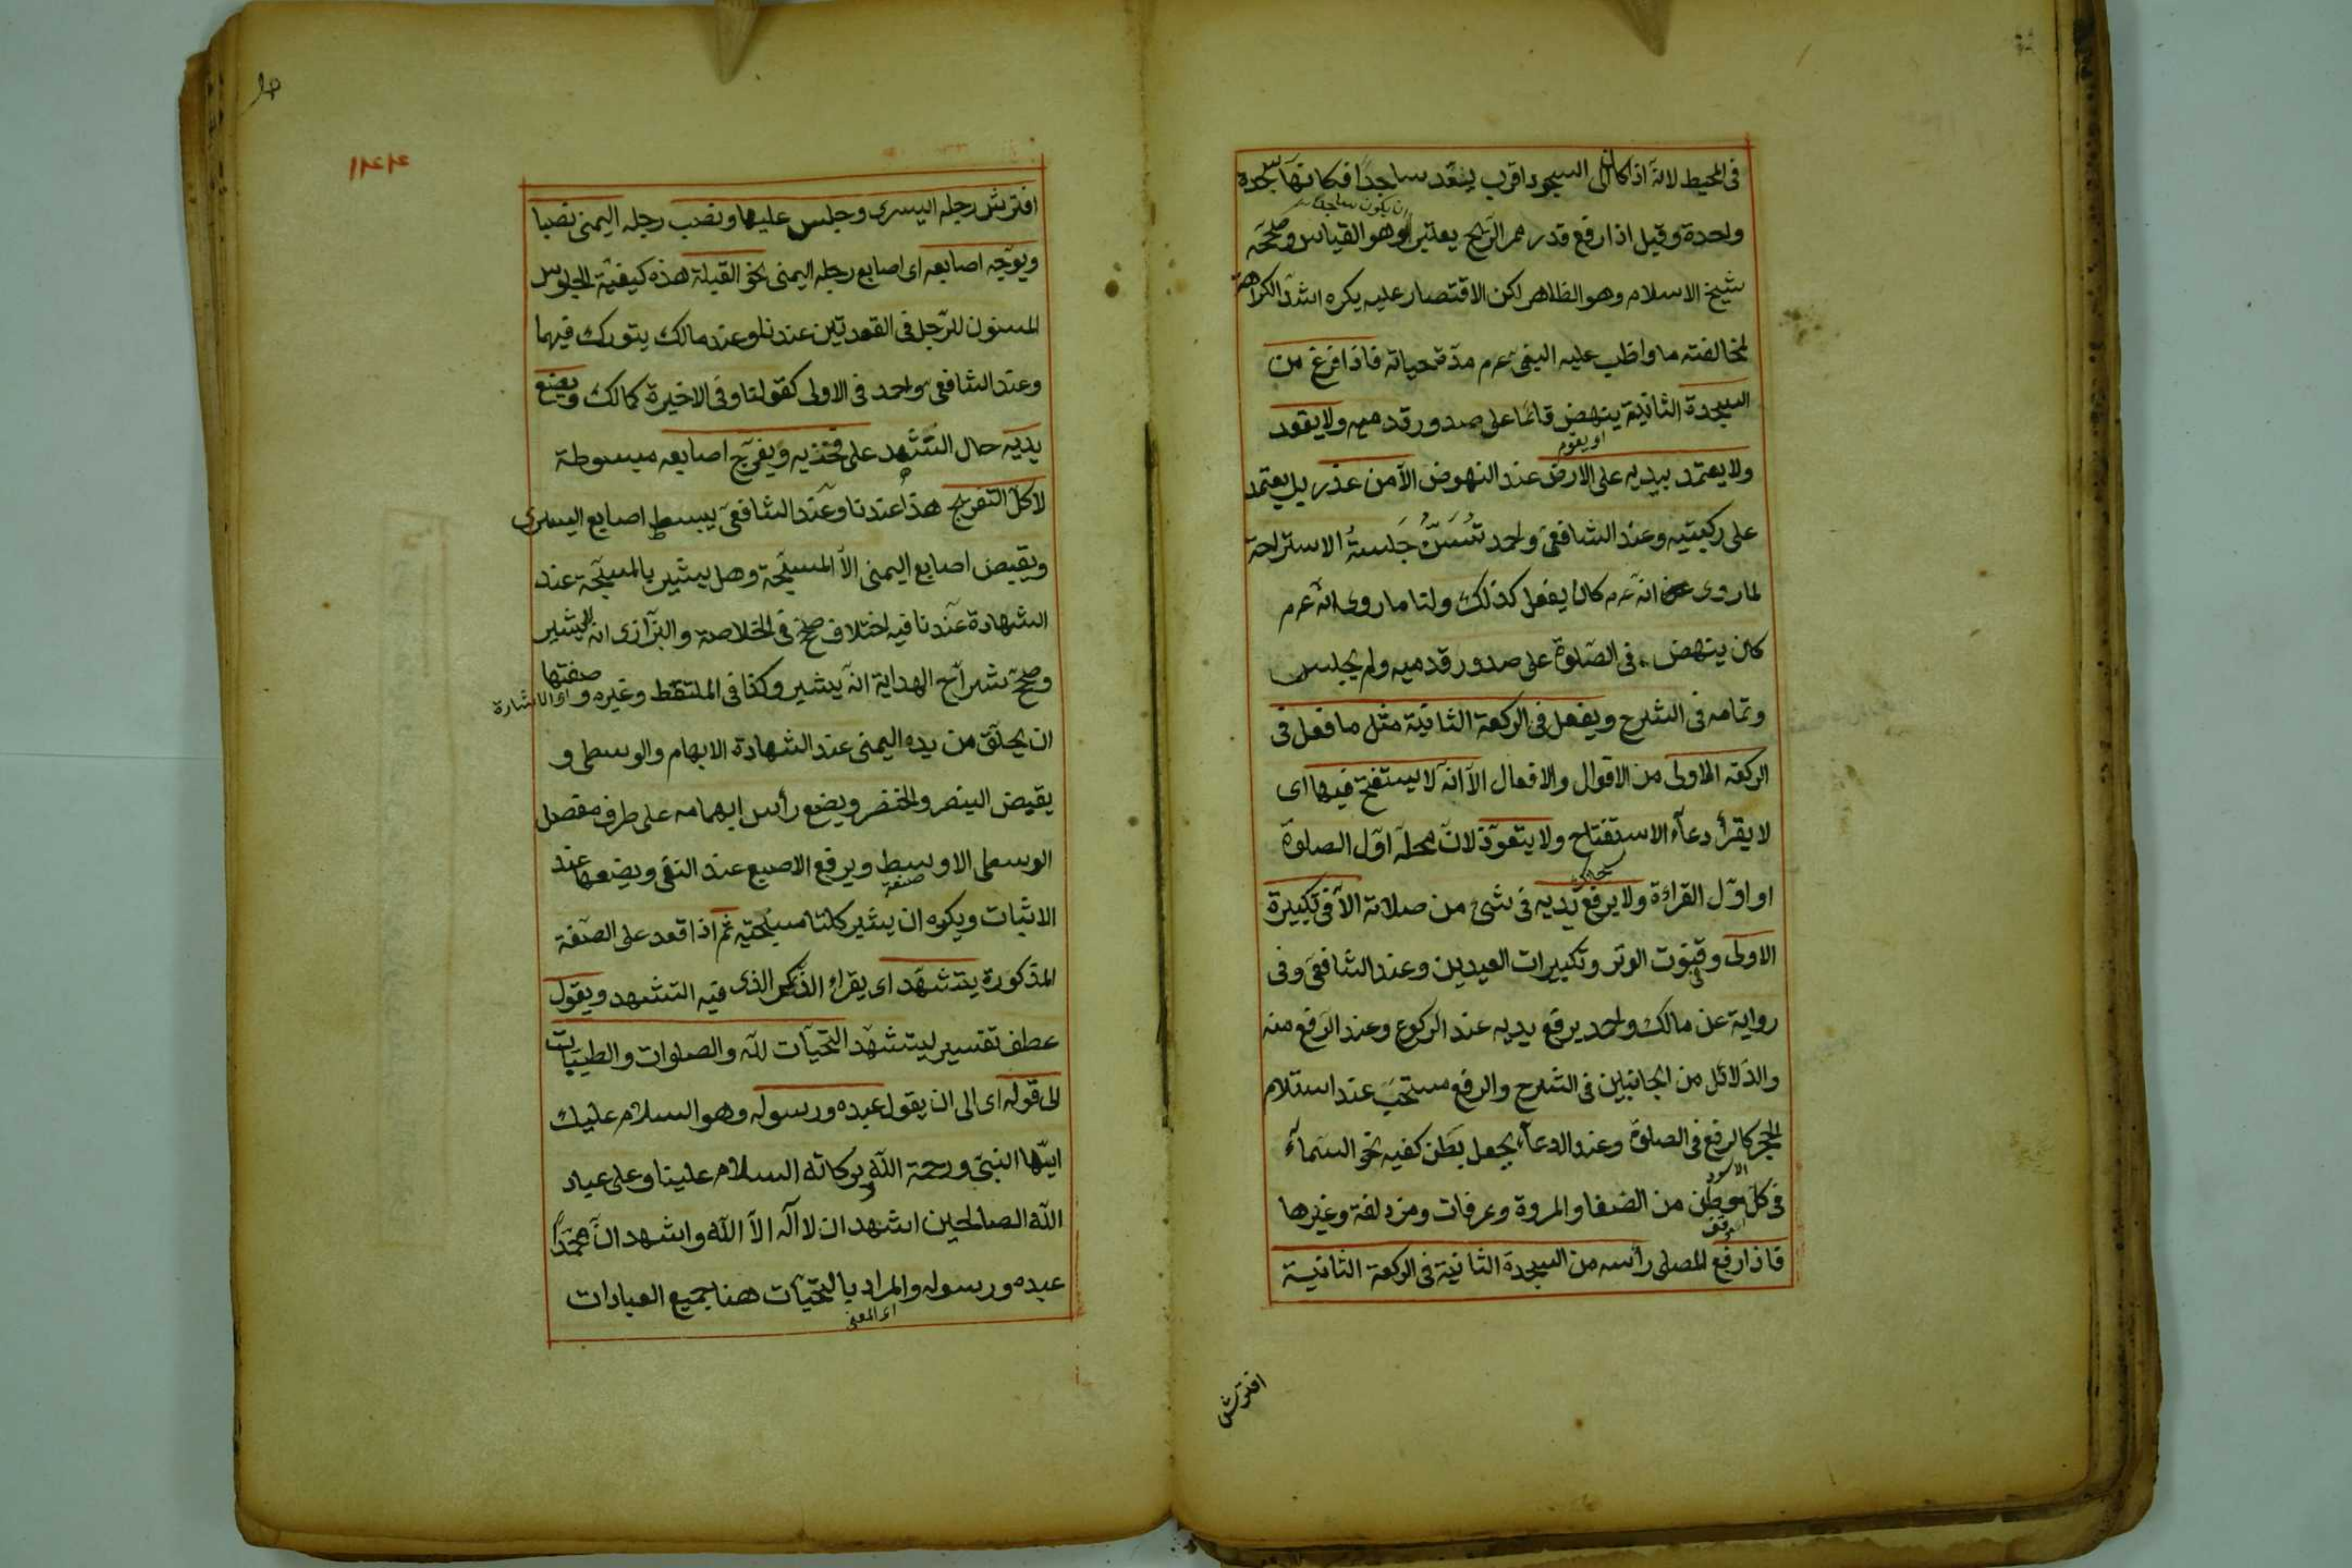 فى المحيط لانه اذا كان الى السجود اقرب يعد ساجدا فكانها سجدة
واحدة وقيل اذا رفع قدر ممر الريح يعتبر وهو القياس وصححه
ان يكون ساجدا
شيخ الاسلام وهو الظاهر لكن الاقتصار عليه يكره اشد الكراهة
لمخالفته ما واظب عليه النبى عم مدة حياته فاذا فرغ من
السجدة الثانية ينهض قائما على صدور قدميه ولا يقعد
او يقوم
ولا يعتمد بيديه على الارض عند النهوض الا من عذر بل يعتمد
على ركبتيه وعند الشافعى واحمد تُسَنُّ جَلسةُ الاستراحة
لما روى انه عم كان يفعل كذلك ولنا ما روى انه عم
كان ينهض فى الصلوة على صدور قدميه ولم يجلس
وتمامه فى الشرح ويفعل فى الركعة الثانية مثل ما فعل فى
الركعة الاولى من الاقوال والافعال الا انه لا يستفتح فيها اى
لا يقرأ دعاء الاستفتاح ولا يتعوذ لان محله اول الصلوة
او اول القراءة ولا يرفع يديه فى شئ من صلاته الا فى تكبيرة
الاولى وقنوت الوتر وتكبيرات العيدين وعند الشافعى وفى
رواية عن مالك واحمد يرفع يديه عند الركوع وعند الرفع منه
والدلائل من الجانبين فى الشرح والرفع مستحب عند استلام
الحجر كالرفع فى الصلوة وعند الدعاء يجعل بطن كفيه نحو السماء
الاسود
فى كل موطن من الصفا والمروة وعرفات ومزدلفة وغيرها
فاذا رفع المصلى رأسه من السجدة الثانية فى الركعة الثانية
افترش
١٢٤٤
افترش رجله اليسرى وجلس عليها ونصب رجله اليمنى نصبا
ويوجه اصابعه اى اصابع رجله اليمنى نحو القبلة هذه كيفية الجلوس
المسنون للرجل فى القعدتين عندنا وعند مالك يتورك فيهما
وعند الشافعى واحمد فى الاولى كقولنا وفى الاخيرة كمالك ويضع
يديه حال التشهد على فخذيه ويفرج اصابعه مبسوطة
لا كل التفريج هذا عندنا وعند الشافعى يبسط اصابع اليسرى
ويقبض اصابع اليمنى الا المسبحة وهل يشير بالمسبحة عند
الشهادة عندنا فيه اختلاف صحح فى الخلاصة والبزازى انه لا يشير
وصحح شراح الهداية انه يشير وكذا فى الملتقط وغيره وصفتها
اى الاشارة
ان يحلق من يده اليمنى عند الشهادة الابهام والوسطى و
يقبض البنصر والخنصر ويضع رأس ابهامه على طرف مفصل
الوسطى الاوسط ويرفع الاصبع عند النفى ويضعها عند
صفة
الاثبات ويكره ان يشير بكلتا مسبحتيه ثم اذا قعد على الصفة
المذكورة يتشهد اى يقرأ الذكر الذى فيه التشهد ويقول
عطف تفسير ليتشهد التحيات لله والصلوات والطيبات
الى قوله اى الى ان يقول عبده ورسوله وهو السلام عليك
ايها النبى ورحمة الله وبركاته السلام علينا وعلى عباد
الله الصالحين اشهد ان لا اله الا الله واشهد ان محمدا
عبده ورسوله والمراد بالتحيات هنا جميع العبادات
اى المعنى